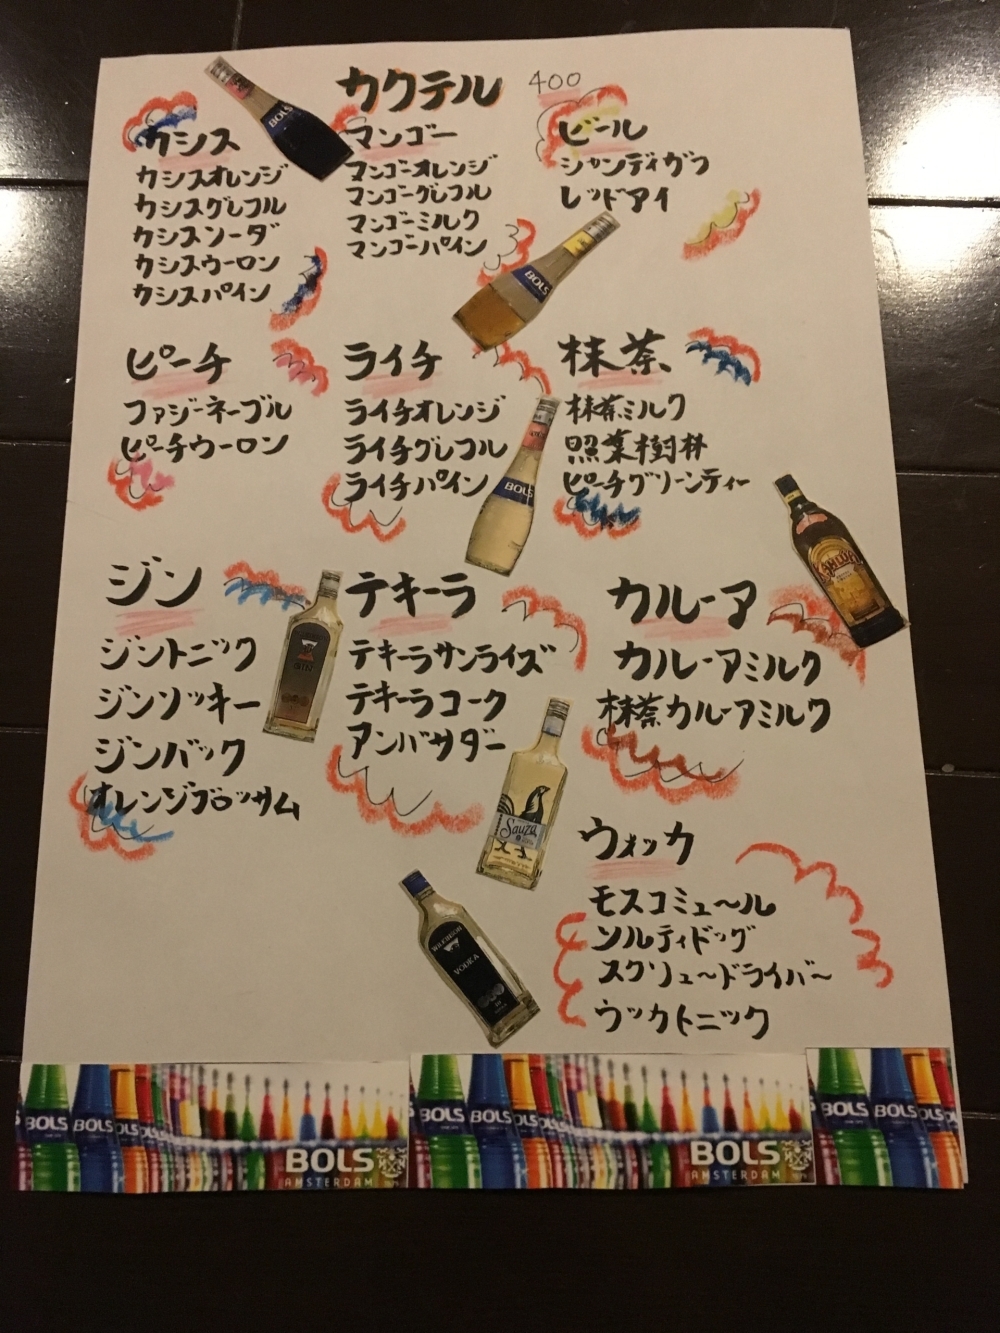 カクテル 400
カシス
カシスオレンジ
カシスグレフル
カシスソーダ
カシスウーロン
カシスパイン
マンゴー
マンゴーオレンジ
マンゴーグレフル
マンゴーミルク
マンゴーパイン
ビール
シャンディガフ
レッドアイ
ピーチ
ファジーネーブル
ピーチウーロン
ライチ
ライチオレンジ
ライチグレフル
ライチパイン
抹茶
抹茶ミルク
照葉樹林
ピーチグリーンティー
ジン
ジントニック
ジンリッキー
ジンバック
オレンジブロッサム
テキーラ
テキーラサンライズ
テキーラコーク
アンバサダー
カルーア
カルーアミルク
抹茶カルーアミルク
ウォッカ
モスコミュ〜ル
ソルティドッグ
スクリュ〜ドライバ〜
ウッカトニック
BOLS
BOLS
BOLS
KAHLUA
Sauza
VODKA
BOLS BOLS BOLS
BOLS
AMSTERDAM
BOLS BOLS BOLS
BOLS
AMSTERDAM
BOLS BOLS